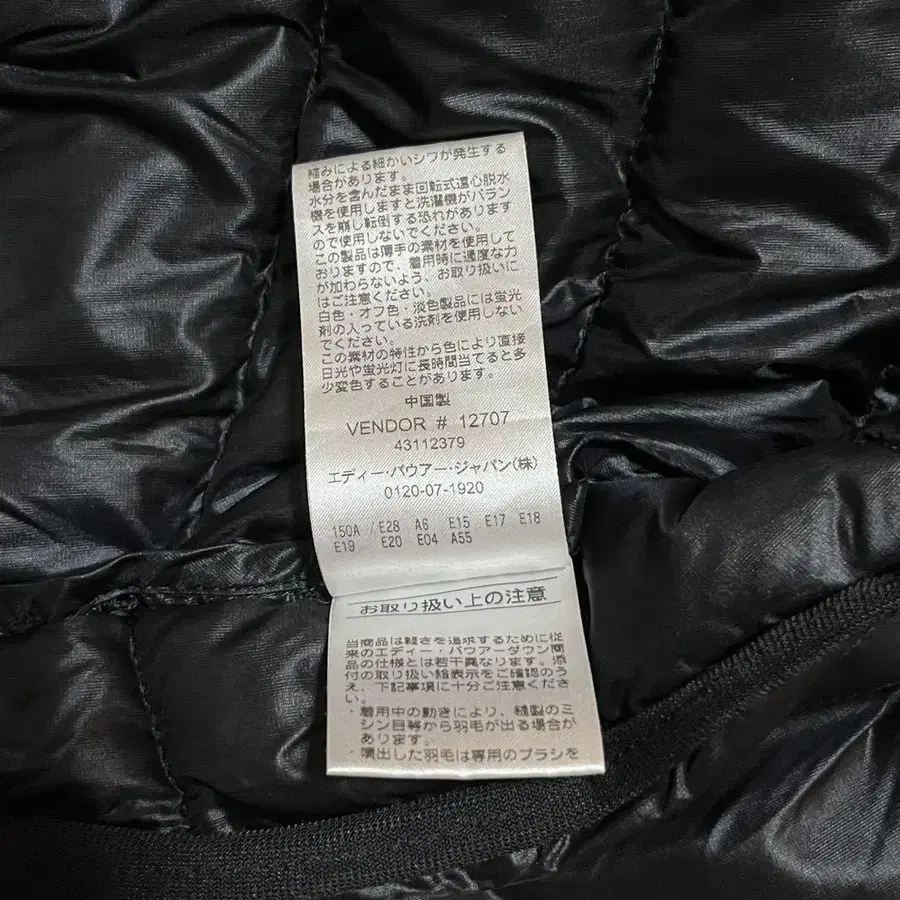 縮みによる細かいシワが発生する
場合があります。
水分を含んだまま回転式遠心脱水
機を使用しますと洗濯機がバラン
スを崩し転倒する恐れがあります
ので使用しないでください。
この製品は薄手の素材を使用して
おりますので、着用時に過度な力
が加わらないよう、お取り扱いに
はご注意ください。
白色・オフ色・淡色製品には蛍光
剤の入っている洗剤を使用しない
でください。
この素材の特性から色により直接
日光や蛍光灯に長時間当てると多
少変色することがあります。
中国製
VENDOR # 12707
43112379
エディー・バウアー・ジャパン(株)
0120-07-1920
150A / E28 A6 E15 E17 E18
E19 E20 E04 A55
お取り扱い上の注意
当商品は軽さを追求するために従
来のエディー・バウアーダウン商
品の仕様とは若干異なります。添
付の取り扱い絵表示をご確認のう
え、下記事項に十分ご注意くださ
い。
・着用中の動きにより、縫製のミ
シン目等から羽毛が出る場合が
あります。
・噴出した羽毛は専用のブラシを